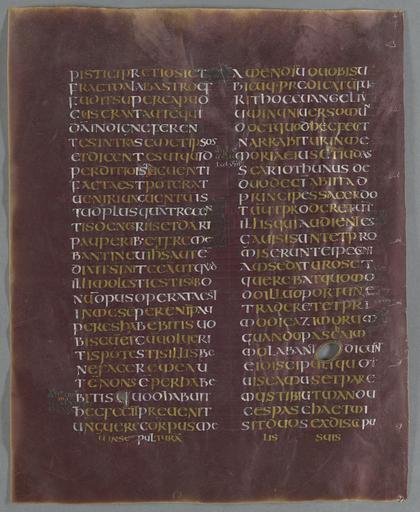 PISTICIPRETIOSIET
FRACTOALABASTROEF
FUDITSUPERCAPUD
EIUSERANTAUTEQUI
DAINDIGNEFEREN
TESINTRASEMETIPSOS
ETDICENTESUTQUID
PERDITIOISTI
FACTAESTPOTERAT
UENIUNGUENTUIS
TUDPLUSQUATRECEN
TISDENARIISETDARI
PAUPERIBETFREME
BANTINEUIHSAUTE
DIXITSINITEEAUTQUID
ILLIMOLESTIESTISBO
NUOPUSOPERATAEST
INMESEPERENIPAU
PERESHABEBITISUO
BISCUETCUUOLUERI
TISPOTESTISILLISBE
NEFACEREMEAU
TENONSEPERHABE
BITISQUODHABUIT
HECFECITPREUENIT
UNGUERECORPUSME
UINSEPULTURA
AMENDICUUOBISU
BICUQPREDICATU
RITHOCEUANGELIU
INUNIUERSOMU
DOETQUODHECFECIT
NARRABITURINME
MORIAEIUSETIUDAS
SCARIOTHUNUSDE
DUODECIABIITAD
PRINCIPESSACERDO
TUUTPRODERETEU
ILLISQUIAUDIENTES
GAUISISUNTETPRO
MISERUNTEIPECUNI
AMSEDATUROSET
QUEREBATQUOMO
DOILLUOPORTUNE
TRADERETETPRI
MODIEAZIMORU
QUANDOPASCAM
MOLABANTDICUNT
EIDISCIPULIQUO
UISEAMUSETPARE
MUSTIBIUTMANDU
CESPASCHAETMI
SITDUOSEXDISCIPU
LIS SUIS